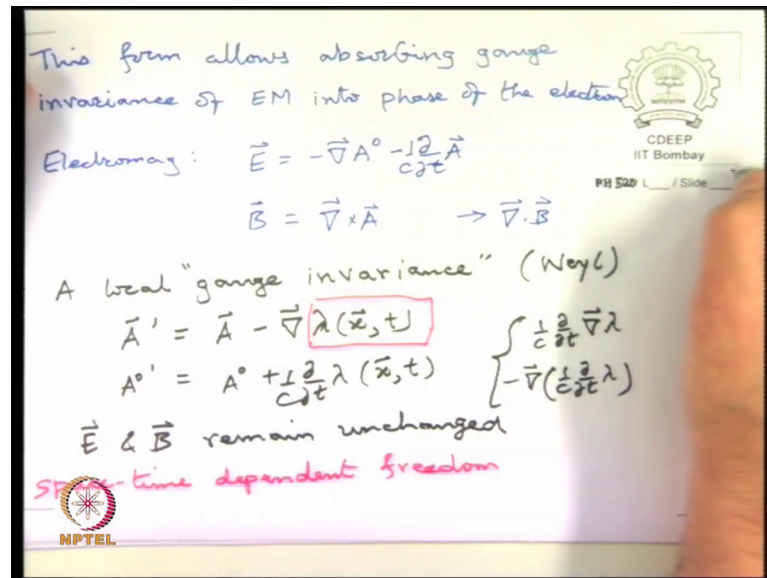 This form allows absorbing gauge
invariance of EM into phase of the electron
CDEEP
IIT Bombay
PH 520 L___ / Slide___
Electromag: E⃗ = -∇⃗A⁰ - 1/c ∂/∂t A⃗
B⃗ = ∇⃗ × A⃗ → ∇⃗·B⃗
A local "gauge invariance" (Weyl)
A⃗' = A⃗ - ∇⃗ λ(x⃗, t) { 1/c ∂/∂t ∇⃗λ
A⁰' = A⁰ + 1/c ∂/∂t λ(x⃗, t) -∇⃗(1/c ∂/∂t λ)
E⃗ & B⃗ remain unchanged
space-time dependent freedom
NPTEL